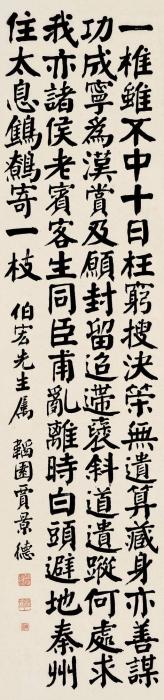 一椎雖不中十日枉窮搜決策無遺算藏身亦善謀
功成寧為漢賞及願封留迢遰褒斜道遺蹤何處求
我亦諸侯老賓客生同臣甫亂離時白頭避地秦州
住太息鷦鷯寄一枝 伯宏先生屬 韜園賈景德